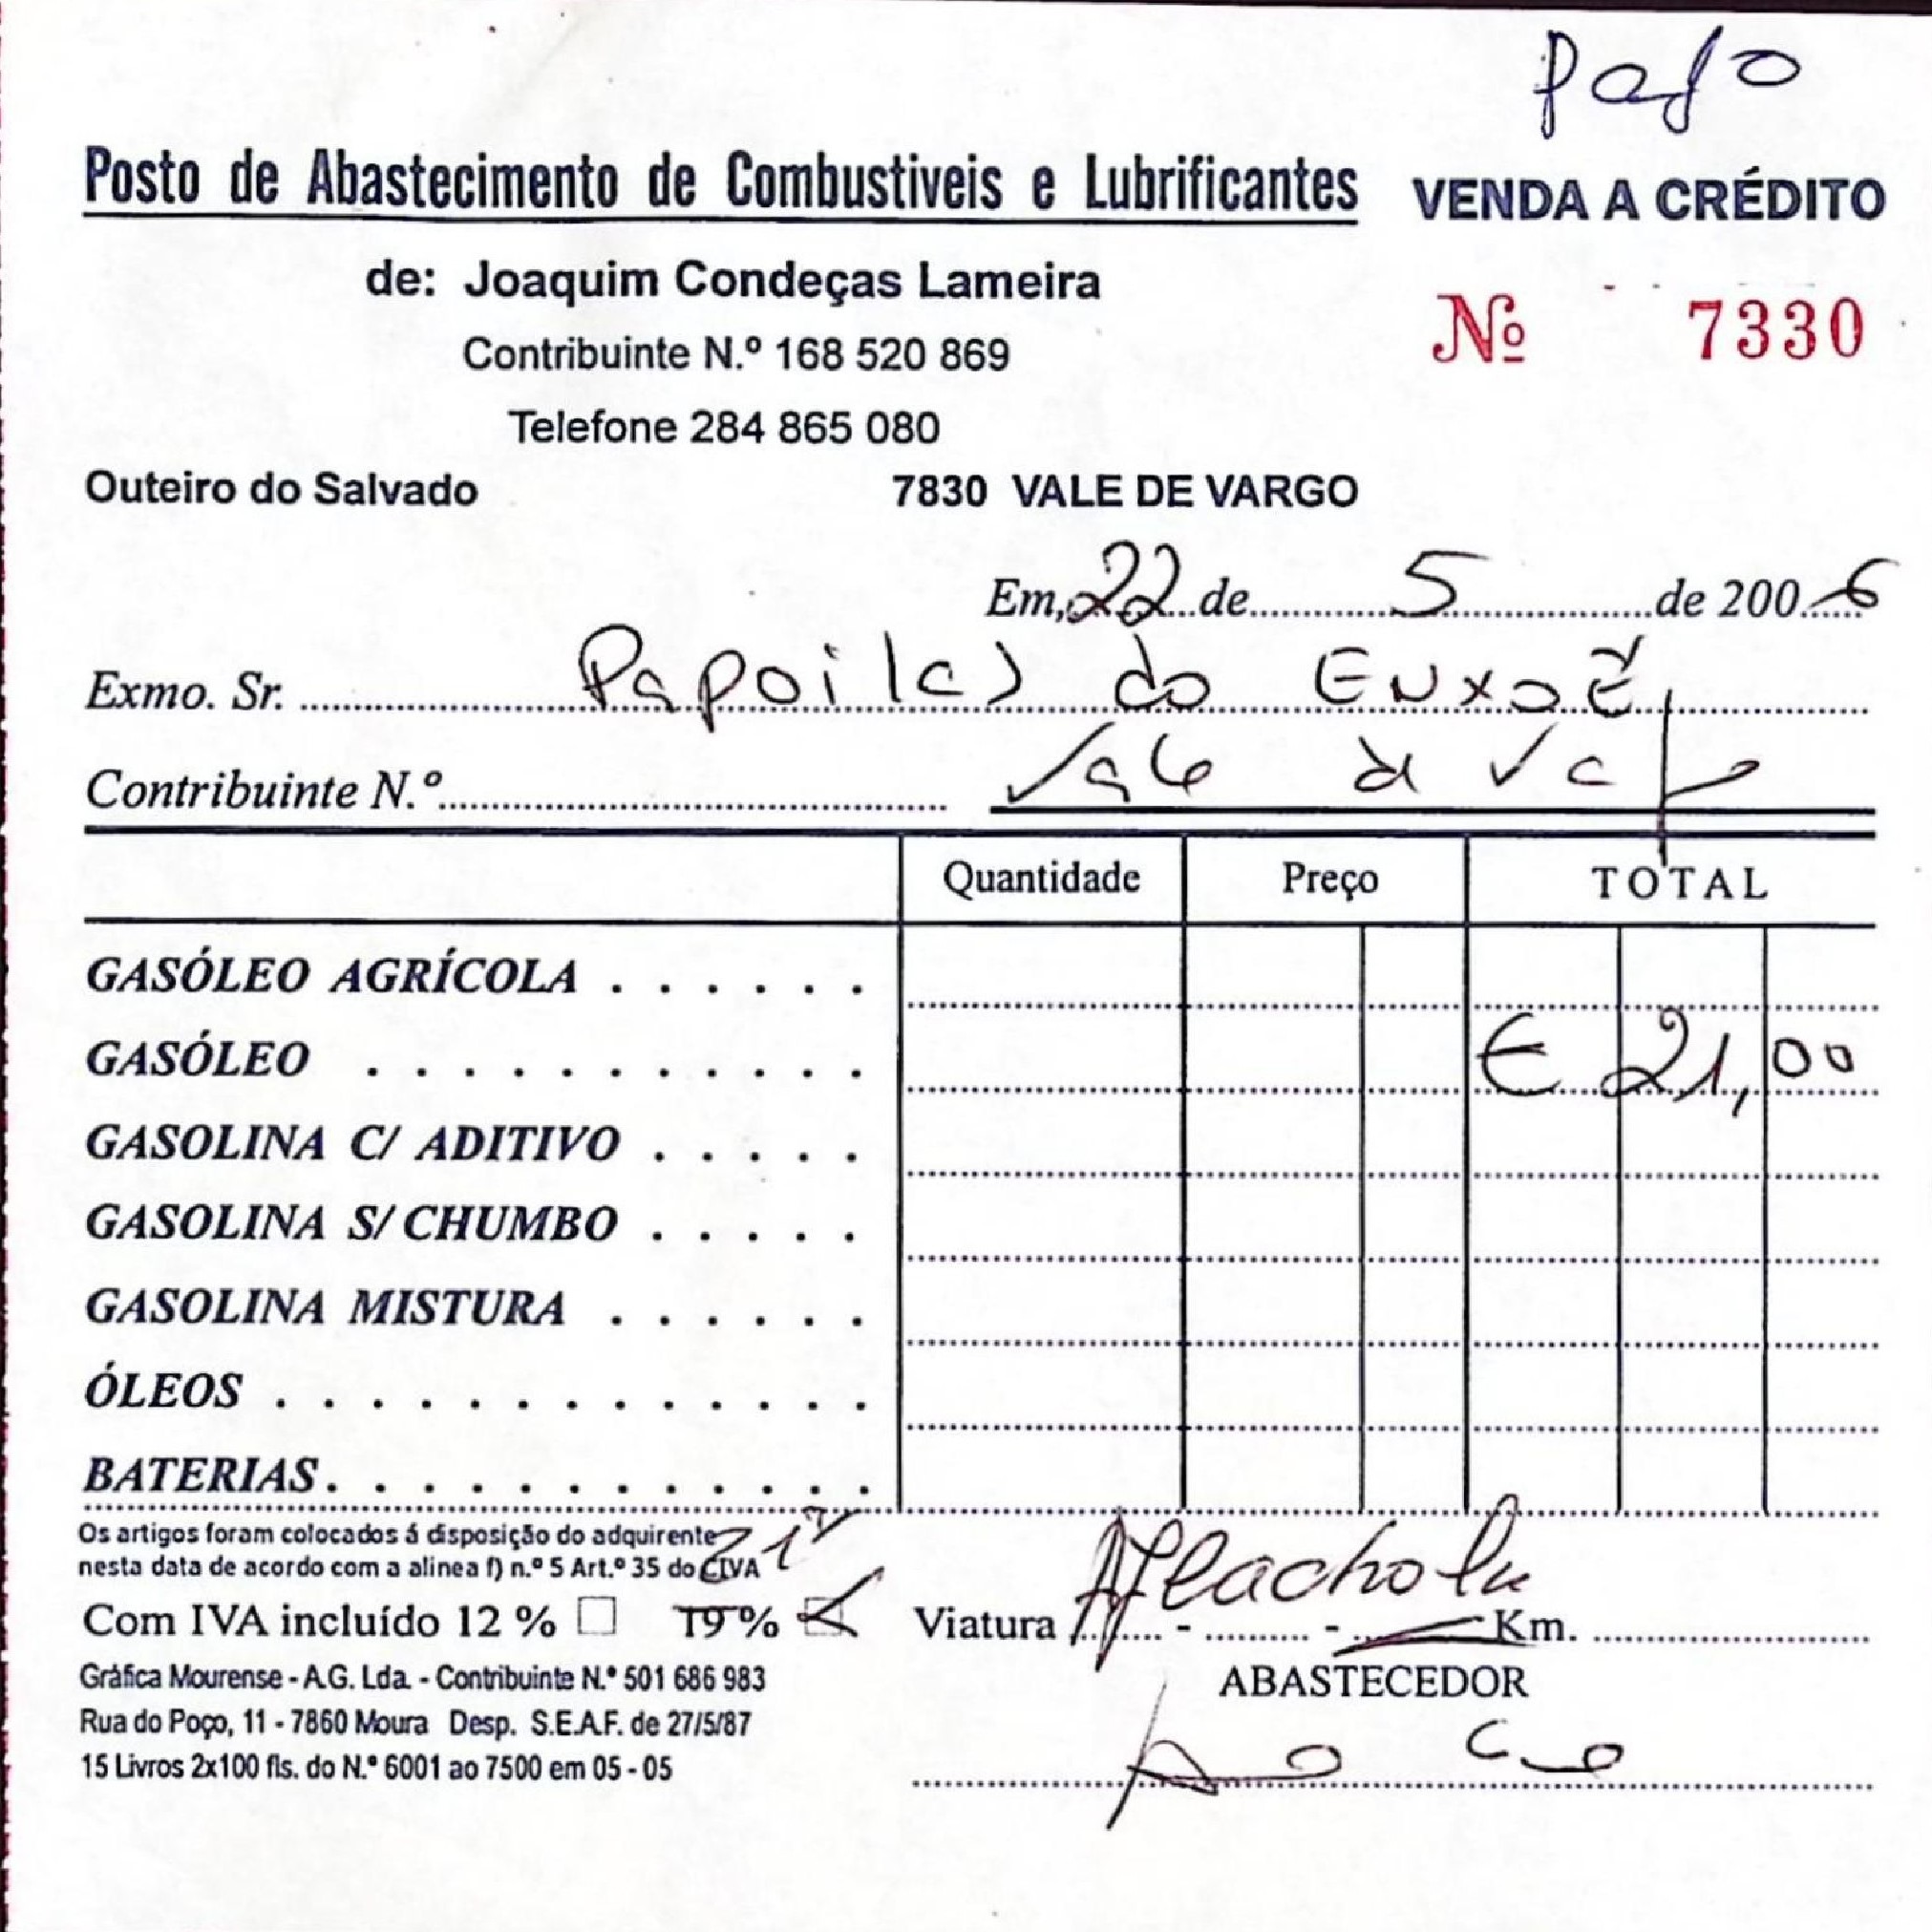 Pago
Posto de Abastecimento de Combustiveis e Lubrificantes VENDA A CRÉDITO
de: Joaquim Condeças Lameira
Nº 7330
Contribuinte N.º 168 520 869
Telefone 284 865 080
Outeiro do Salvado 7830 VALE DE VARGO
Em, 22 de 5 de 2006
Exmo. Sr. Papoilas do Enxoé
Contribuinte N.º Vale de
Quantidade Preço TOTAL
GASÓLEO AGRÍCOLA
GASÓLEO € 21,00
GASOLINA C/ ADITIVO
GASOLINA S/ CHUMBO
GASOLINA MISTURA
ÓLEOS
BATERIAS
Os artigos foram colocados á disposição do adquirente
nesta data de acordo com a alinea f) n.º 5 Art.º 35 do CIVA
21%
Com IVA incluído 12 % 19 % Viatura - - Km.
Gráfica Mourense - A.G. Lda. - Contribuinte N.º 501 686 983
ABASTECEDOR
Rua do Poço, 11 - 7860 Moura Desp. S.E.A.F. de 27/5/87
15 Livros 2x100 fls. do N.º 6001 ao 7500 em 05 - 05